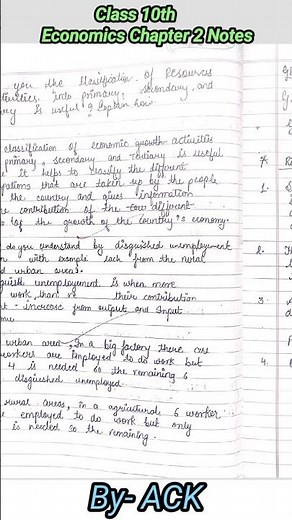 Class 10th
Economics Chapter 2 Notes
you the classification of Resources
tivities into primary, secondary and
ry is useful? Explain how
classification of economic growth activities
primary, secondary and tertiary is useful
e It helps to classify the different
pations that are taken up by the people
the country and gives information
e contribution of the
of the growth of the country's economy.
do you understand by disguished unemployment
n with example each from the rural
d urban areas.
guish unemployement is when more
work than ne their contribution
t increase from output and input
me
urban area, In a big factory there are
workers are employed to do work but
4 is needed so the remaining 6
disguished unemployed
rural areas, in a agricultural 6 worker
e employed to do work but only
is needed so the remaining.
7.
1.
2.
3.
4.
By- ACK